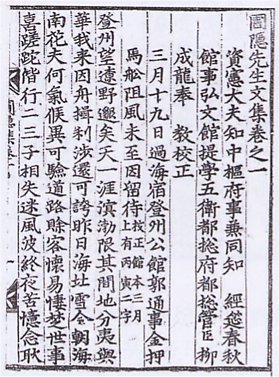 圃隱先生文集卷之一
資憲大夫知中樞府事兼同知　經筵春秋
館事弘文館提學五衛都摠府都摠管臣柳
成龍奉　教校正
三月十九日過海宿登州公館郭通事金押
馬船阻風未至因留待 校正舘本三月上有丙寅二字
登州望遼野邈矣天一涯溟渤限其間地分夷與
華我來因舟楫利涉還可誇昨日海北雪今朝海
南花夫何氣候異可驗道路賒客懷易悽楚世事
喜蹉跎偕行二三子相失迷風波終夜苦憶念耿